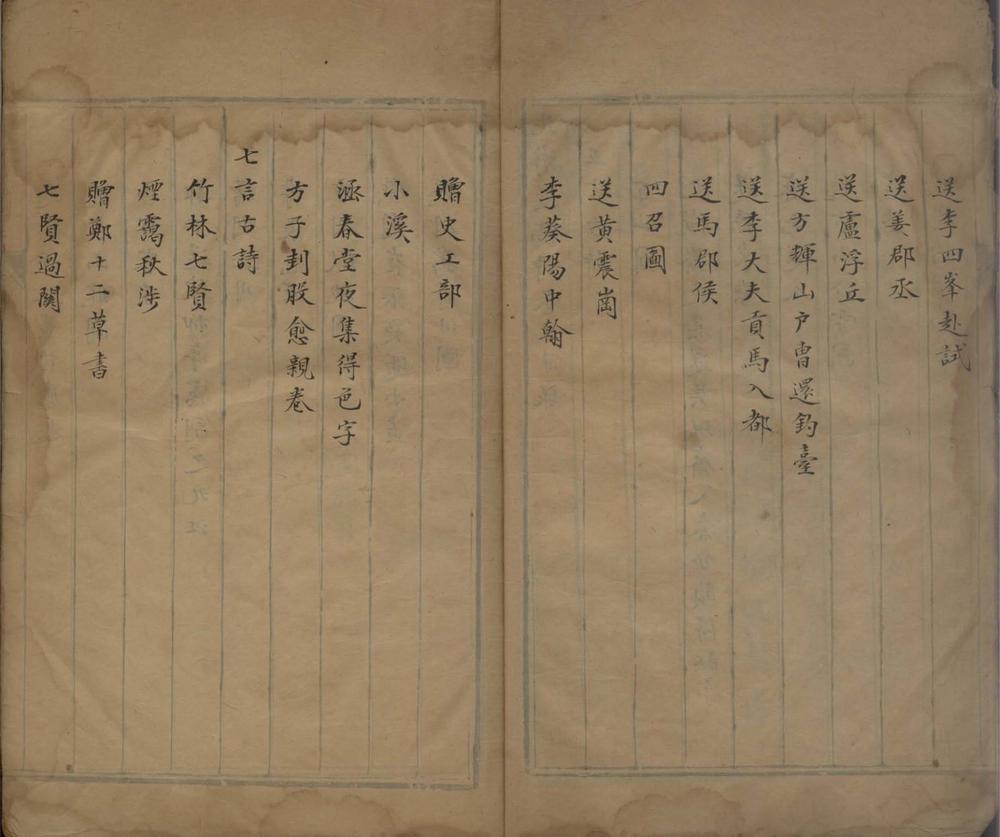 送李四峯赴試
送姜郡丞
送盧浮丘
送方輝山户曹還釣臺
送李大夫貢馬入都
送馬郡侯
四召圖
送黄震崗
李葵陽中翰
贈史工部
小溪
涵春堂夜集得邑字
方子刲股愈親卷
七言古詩
竹林七賢
煙靄秋涉
贈鄭十二草書
七賢過関